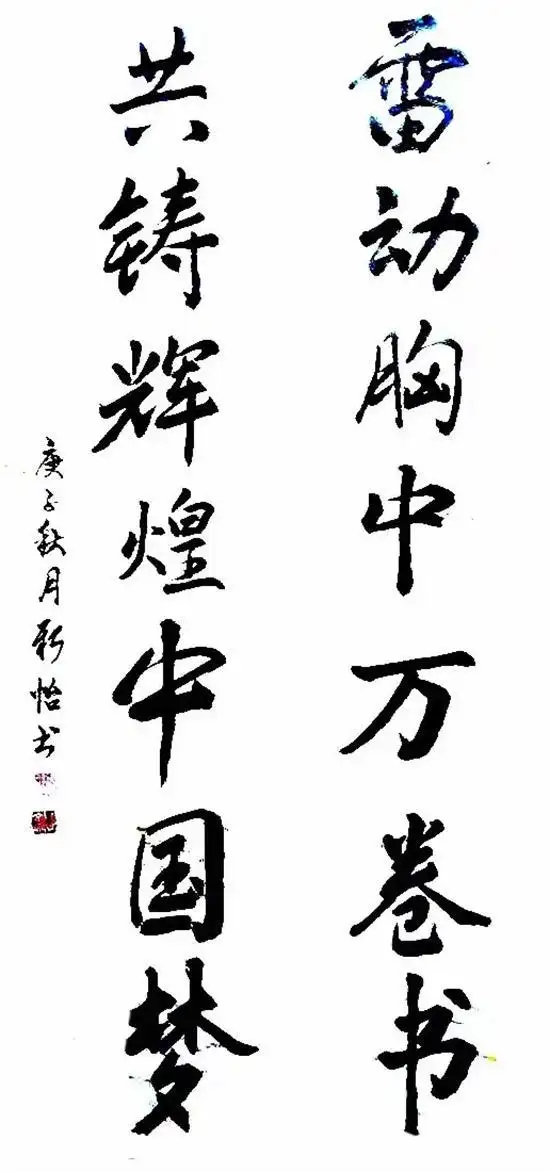 雷动胸中万卷书
共铸辉煌中国梦
庚子秋月新怡书